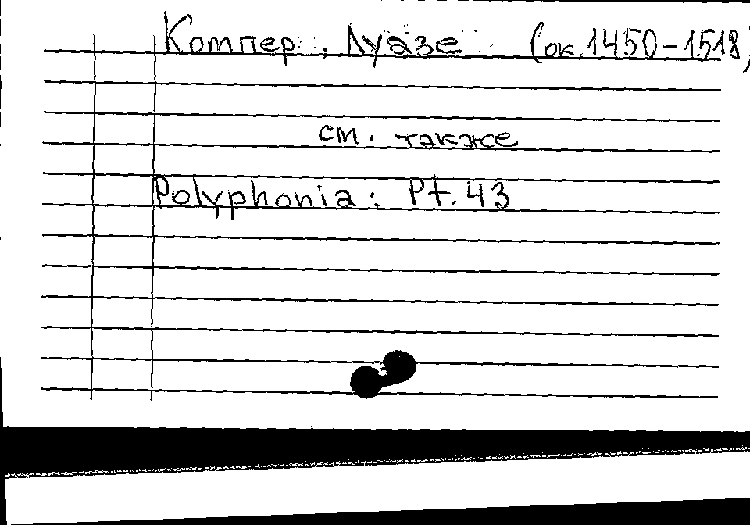 Компер, Луазе (ок.1450-1518)
см. также
Polyphonia: Pt.43